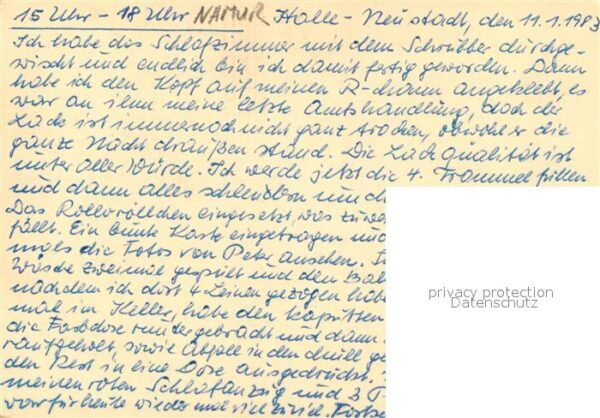 15 Uhr – 18 Uhr NAMUR Halle - Neustadt, den 11.1.1983
Ich habe das Schlafzimmer mit dem Schrubber durchge-
wischt und endlich bin ich damit fertig geworden. Dann
habe ich den Kopf auf meinen R-mann angeklebt, es
war an ihm meine letzte Amtshandlung, doch der
Lack ist immer noch nicht ganz trocken, obwohl er die
ganze Nacht draußen stand. Die Lackqualität ist
unter aller Würde. Ich werde jetzt die 4. Trommel füllen
und dann alles schleudern und
Das Rollröllchen eingesetzt, was
fällt. Ein bunte Karte eingetragen und
mals die Fotos von Peter ansehen.
Wäsche zweimal gespült und den
nachdem ich dort 4 Leinen gezogen habe
mal im Keller, habe den kaputten
die Farbdose runtergebracht und dann
raufgeholt, sowie Abfälle in den Müll
den Rest in eine Dose ausgedrückt.
meinen roten Schlafanzug und 3
war für heute wieder mal viel zuviel. Forts
privacy protection
Datenschutz